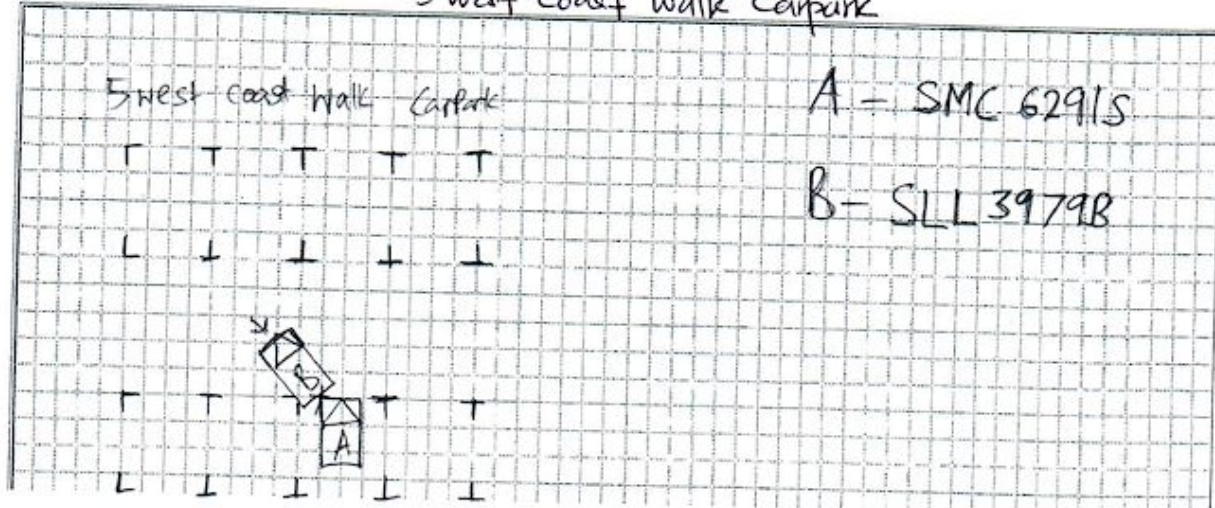 5 west coast walk Carpark
5 west coast walk Carpark
A - SMC 6291S
B - SLL 3979B
B
A